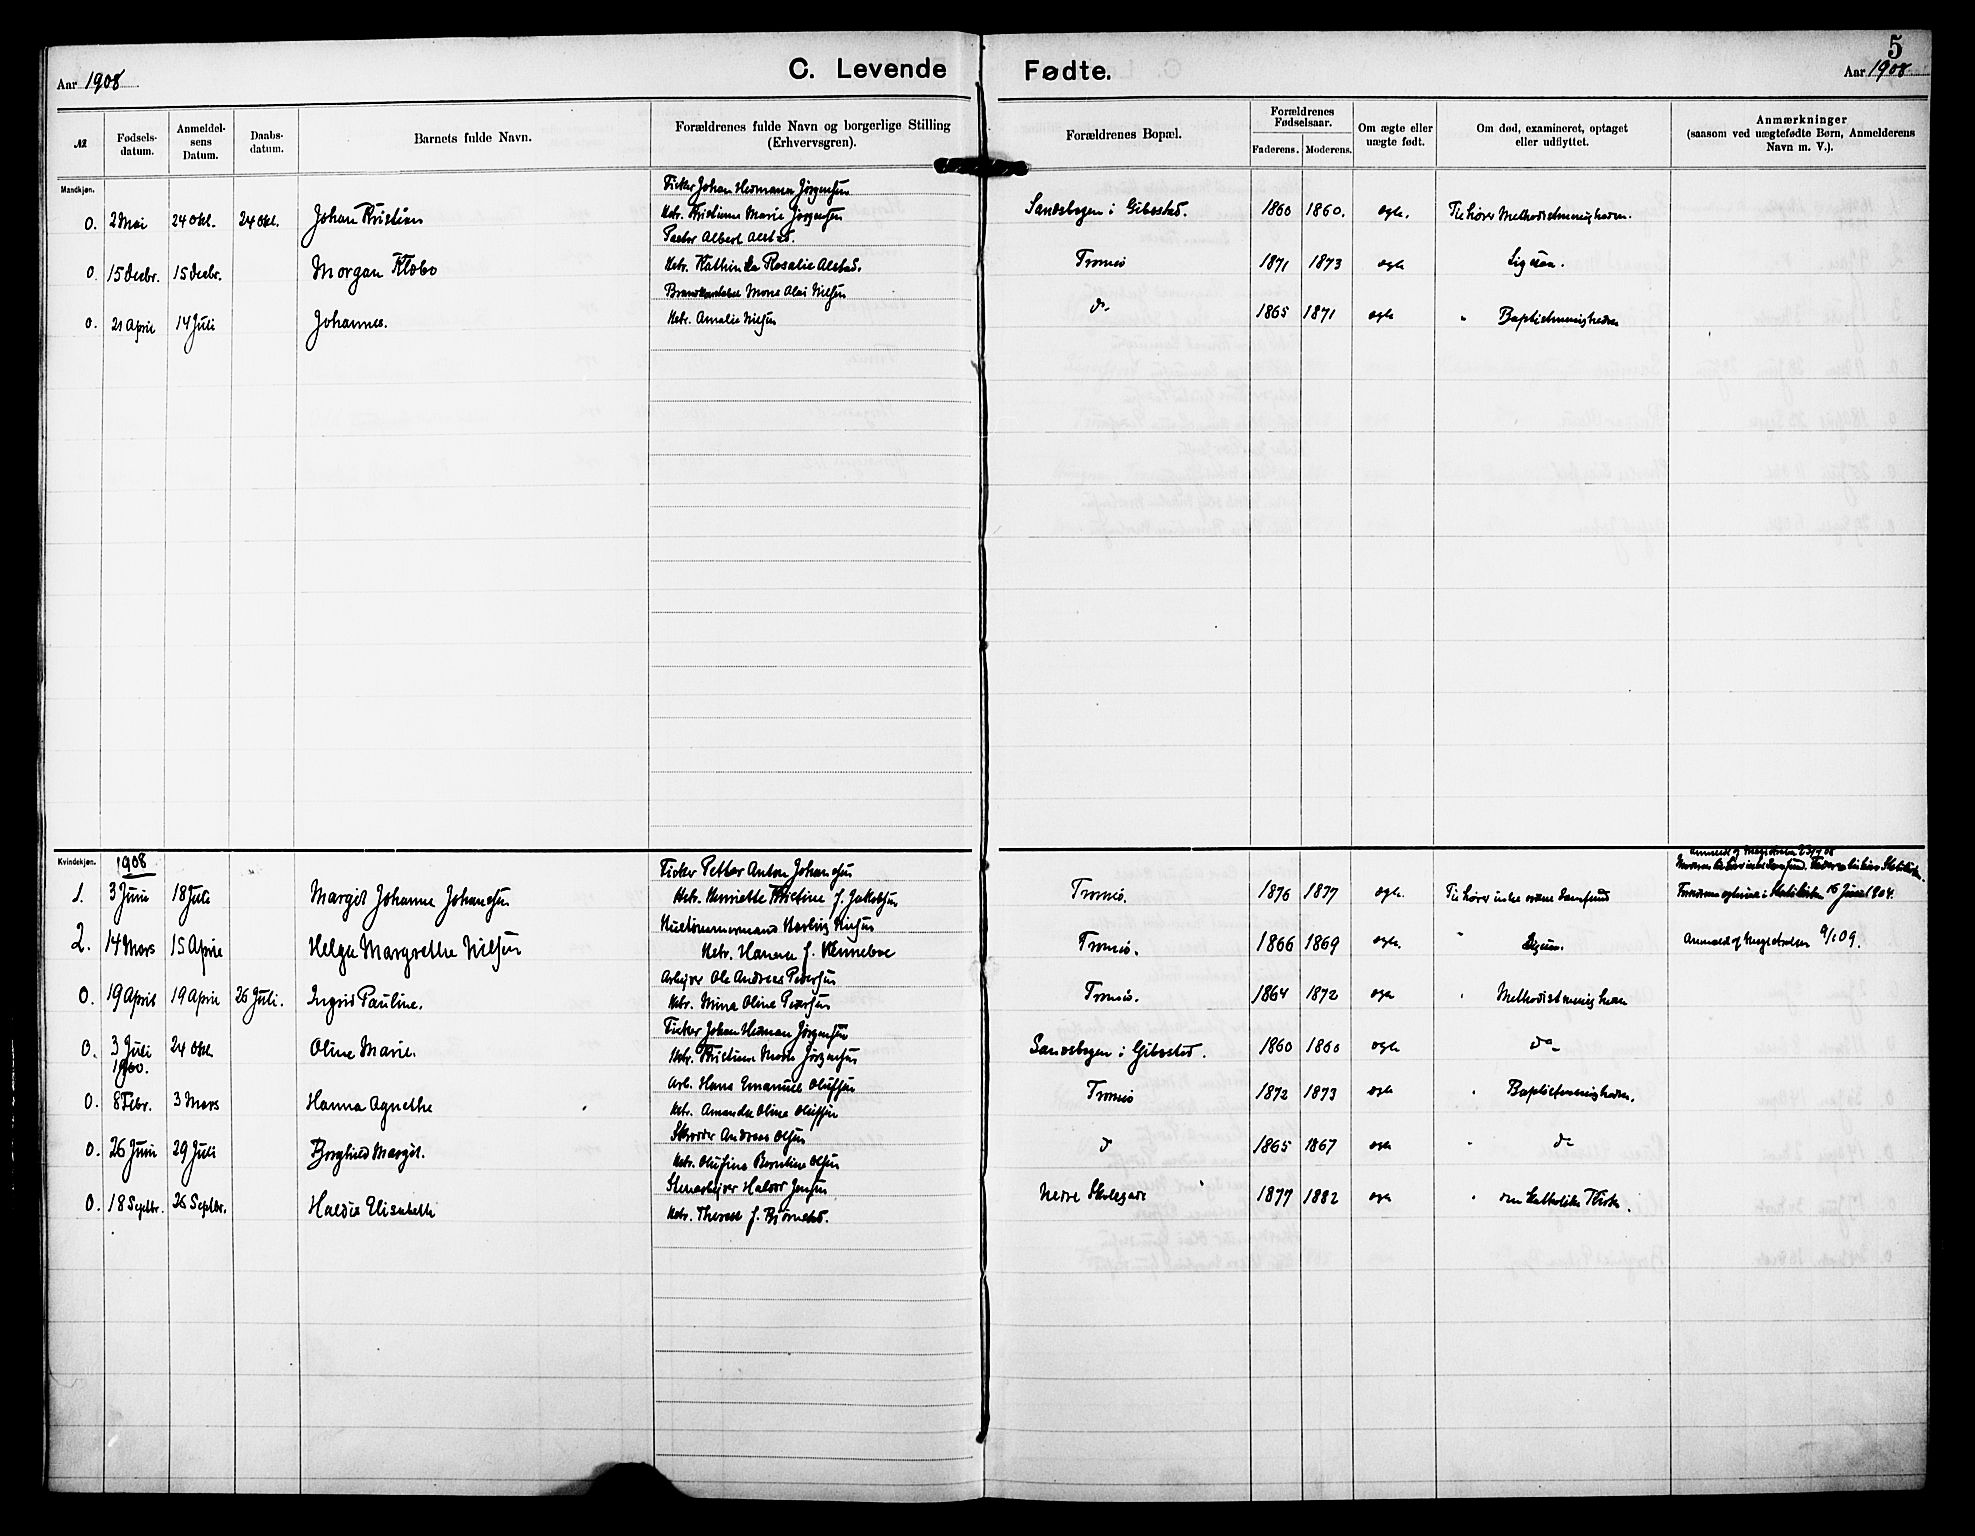 5
Aar 1908
C. Levende Fødte.
Aar 1908
№
Fødsels-datum.
Anmeldel-sens Datum.
Daabs-datum.
Barnets fulde Navn.
Forældrenes fulde Navn og borgerlige Stilling
(Erhvervsgren).
Forældrenes Bopæl.
Forældrenes Fødselsaar.
Faderens. Moderens.
Om ægte eller uægte født.
Om død, examineret, optaget eller udflyttet.
Anmærkninger
(saasom ved uægtefødte Børn, Anmelderens Navn m. V.).
Mandkjøn.
Fisker Johan Hermann Jørgensen
0. 2 Mai 24 Okt. 24 Okt. Johan Kristian Hstr. Kristiane Marie Jørgensen Sandsbogen i Gibostad. 1860 1860. ægte. Tilhører Methodistmenigheden.
Pastor Albert Alstad.
0. 15 Decbr. 15 Decbr. Morgan Klæbo Hstr. Kathinka Rosalie Alstad. Tromsø 1871 1873 ægte
Olai Nilsen
0. 21 April 14 Juli Johannes. Hstr. Amalie Nilsen do 1865 1871 ægte " Baptistmenigheden
Kvindekjøn.
1908
Fisker Petter Anton Johansen
1. 3 Juni 18 Juli Margit Johanne Johansen Hstr. Henriette Kristine f. Jakobsen Tromsø. 1876 1877 ægte. Tilhører intet Samfund 16 Juni 1904.
Nielsen
2. 14 Mars 15 April Helga Margrethe Nilsen Hstr. Hanna f. Kenneboe Tromsø. 1866 1869 ægte. " Anmeldt af Magistraten 9/1 09.
Arbeider Ole Andreas Pedersen
0. 19 April 19 April 26 Juli. Ingrid Pauline. Hstr. Mina Oline Pedersen Tromsø. 1864 1872 ægte " Methodistmenigheden
Fisker Johan Herman Jørgensen
0. 3 Juli 24 Okt. Oline Marie. Hstr. Kristiane Marie Jørgensen Sandsbogen i Gibostad. 1860 1860 ægte do
Arb. Hans Emanuel Olufsen
0. 8 Febr. 3 Mars Hanna Agnethe Hstr. Amanda Oline Olufsen Tromsø 1872 1873 ægte " Baptistmenigheden.
Skrædder Andreas Olsen
0. 26 Juni 29 Juli Borghild Margit. Hstr. Olufine Berntine Olsen do 1865 1867 ægte " do
Stenarbeider Halvor Jensen
0. 18 Septbr. 26 Septbr. Haldis Elisabeth Hstr. Therese f. Bjørnstad. Nedre Skolegade 1877 1882 ægte " den katholske Kirke.